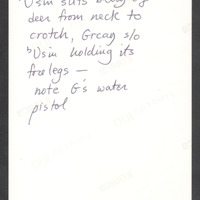 Usin slits body of
deer from neck to
crotch, Grcay s/o
Usin holding its
forelegs —
note G's water
pistol